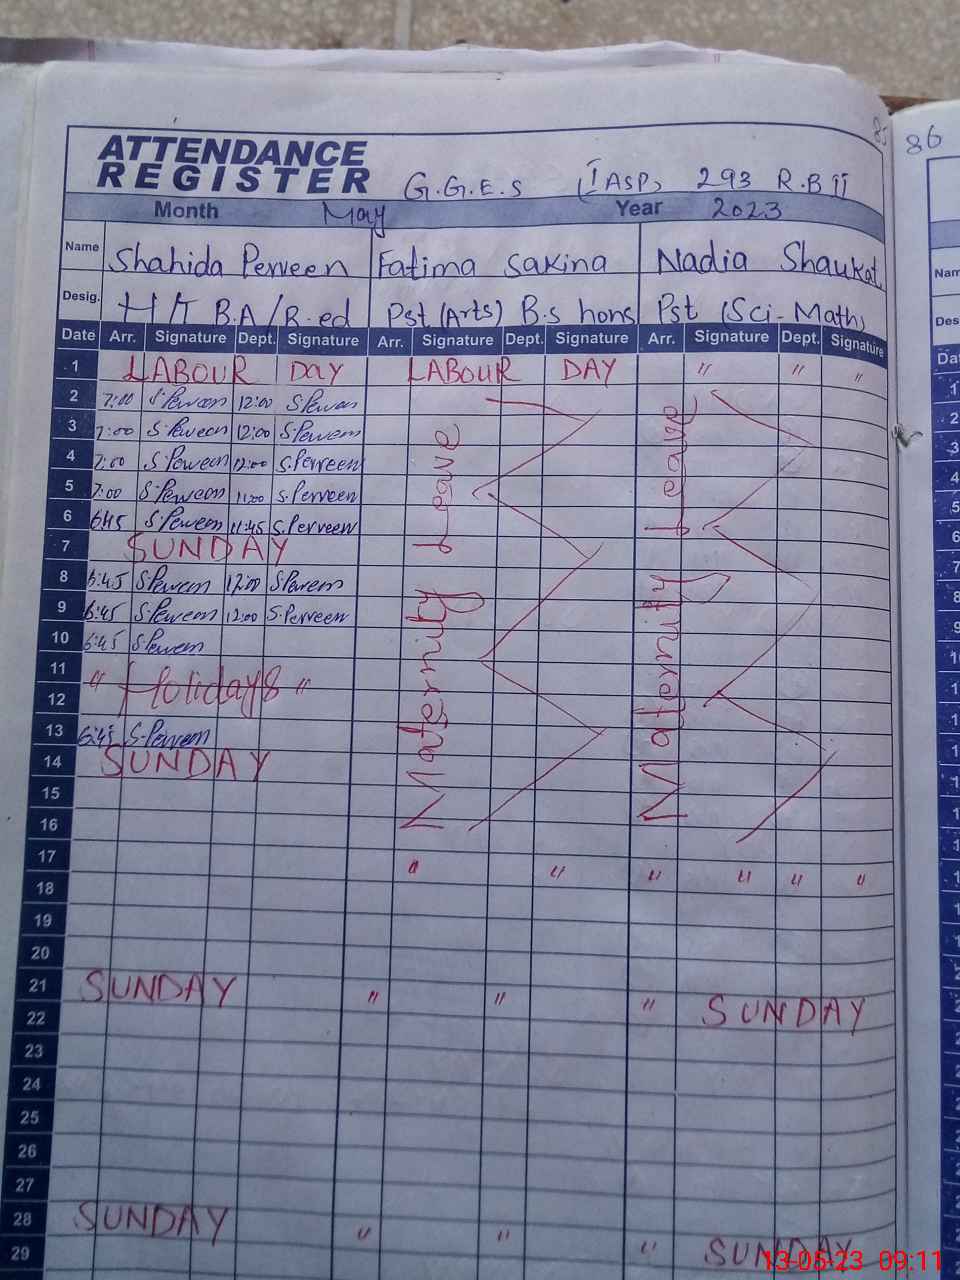 85
86
ATTENDANCE
REGISTER G.G.E.S (IASP) 293 R.B II
Month May Year 2023
Name Shahida Perveen Fatima Sakina Nadia Shaukat
Desig. H/T B.A/B.ed Pst (Arts) B.s hons Pst (Sci-Math)
Date Arr. Signature Dept. Signature Arr. Signature Dept. Signature Arr. Signature Dept. Signature
1 LABOUR DAY LABOUR DAY " " "
2 7:00 S.Perveen 12:00 S.Perveen
3 7:00 S.Perveen 12:00 S.Perveen
4 7:00 S.Perveen 12:00 S.Perveen
5 7:00 S.Perveen 11:00 S.Perveen
6 6:45 S.Perveen 11:45 S.Perveen
7 SUNDAY
8 6:45 S.Perveen 12:00 S.Perveen
9 6:45 S.Perveen 12:00 S.Perveen
10 6:45 S.Perveen
11 " Holidays "
12
13 6:45 S.Perveen
14 SUNDAY
Maternity Leave
Maternity Leave
15
16
17
18 " " " " " "
19
20
21 SUNDAY " " " SUNDAY
22
23
24
25
26
27
28 SUNDAY " " " SUNDAY
29
13-05-23 09:11
Nam
Des
Dat